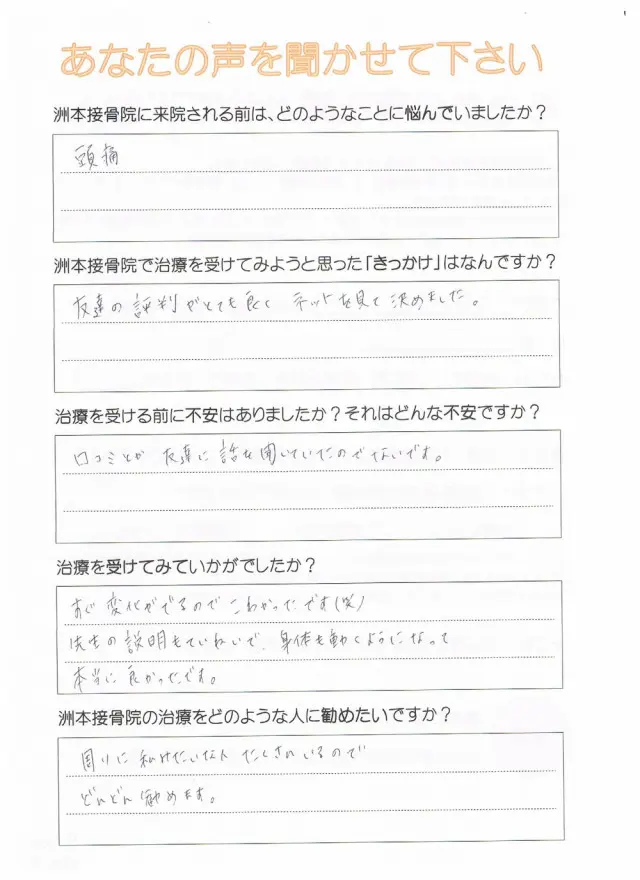 あなたの声を聞かせて下さい
洲本接骨院に来院される前は、どのようなことに悩んでいましたか？
頭痛
洲本接骨院で治療を受けてみようと思った「きっかけ」はなんですか？
友達の評判がとても良く ネットを見て決めました。
治療を受ける前に不安はありましたか？それはどんな不安ですか？
口コミとか 友達に話を聞いていたのでないです。
治療を受けてみていかがでしたか？
変化がでるのでこわかったです(笑)
先生の説明もていねいで、身体も動くようになって
本当に良かったです。
洲本接骨院の治療をどのような人に勧めたいですか？
周りに たくさんいるので
どんどん勧めます。